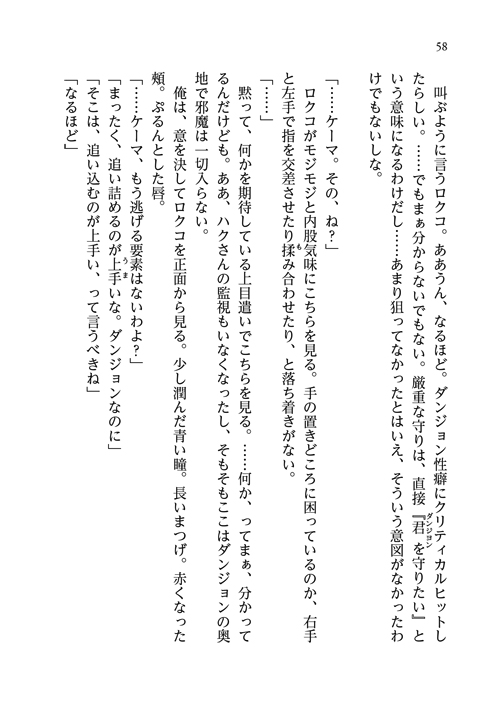 58
叫ぶように言うロクコ。ああうん、なるほど。ダンジョン性癖にクリティカルヒットし
たらしい。……でもまぁ分からないでもない。厳重な守りは、直接『君を守りたい』と
ダンジョン
いう意味になるわけだし……あまり狙ってなかったとはいえ、そういう意図がなかったわ
けでもないしな。
「……ケーマ。その、ね？」
ロクコがモジモジと内股気味にこちらを見る。手の置きどころに困っているのか、右手
と左手で指を交差させたり揉み合わせたり、と落ち着きがない。
も
「……」
黙って、何かを期待している上目遣いでこちらを見る。……何か、ってまぁ、分かって
るんだけども。ああ、ハクさんの監視もいなくなったし、そもそもここはダンジョンの奥
地で邪魔は一切入らない。
俺は、意を決してロクコを正面から見る。少し潤んだ青い瞳。長いまつげ。赤くなった
頬。ぷるんとした唇。
「……ケーマ、もう逃げる要素はないわよ？」
「まったく、追い詰めるのが上手いな。ダンジョンなのに」
うま
「そこは、追い込むのが上手い、って言うべきね」
「なるほど」